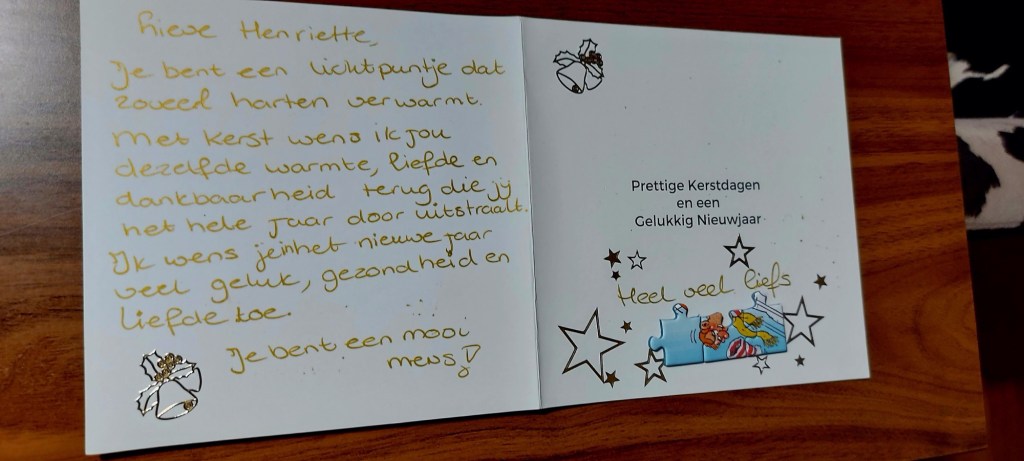 Lieve Henriette,
Je bent een lichtpuntje dat
zoveel harten verwarmt.
Met kerst wens ik jou
dezelfde warmte, liefde en
dankbaarheid terug die jij
het hele jaar door uitstraalt.
Ik wens je in het nieuwe jaar
veel geluk, gezondheid en
liefde toe.
Je bent een mooi
mens!
Prettige Kerstdagen
en een
Gelukkig Nieuwjaar
Heel veel liefs